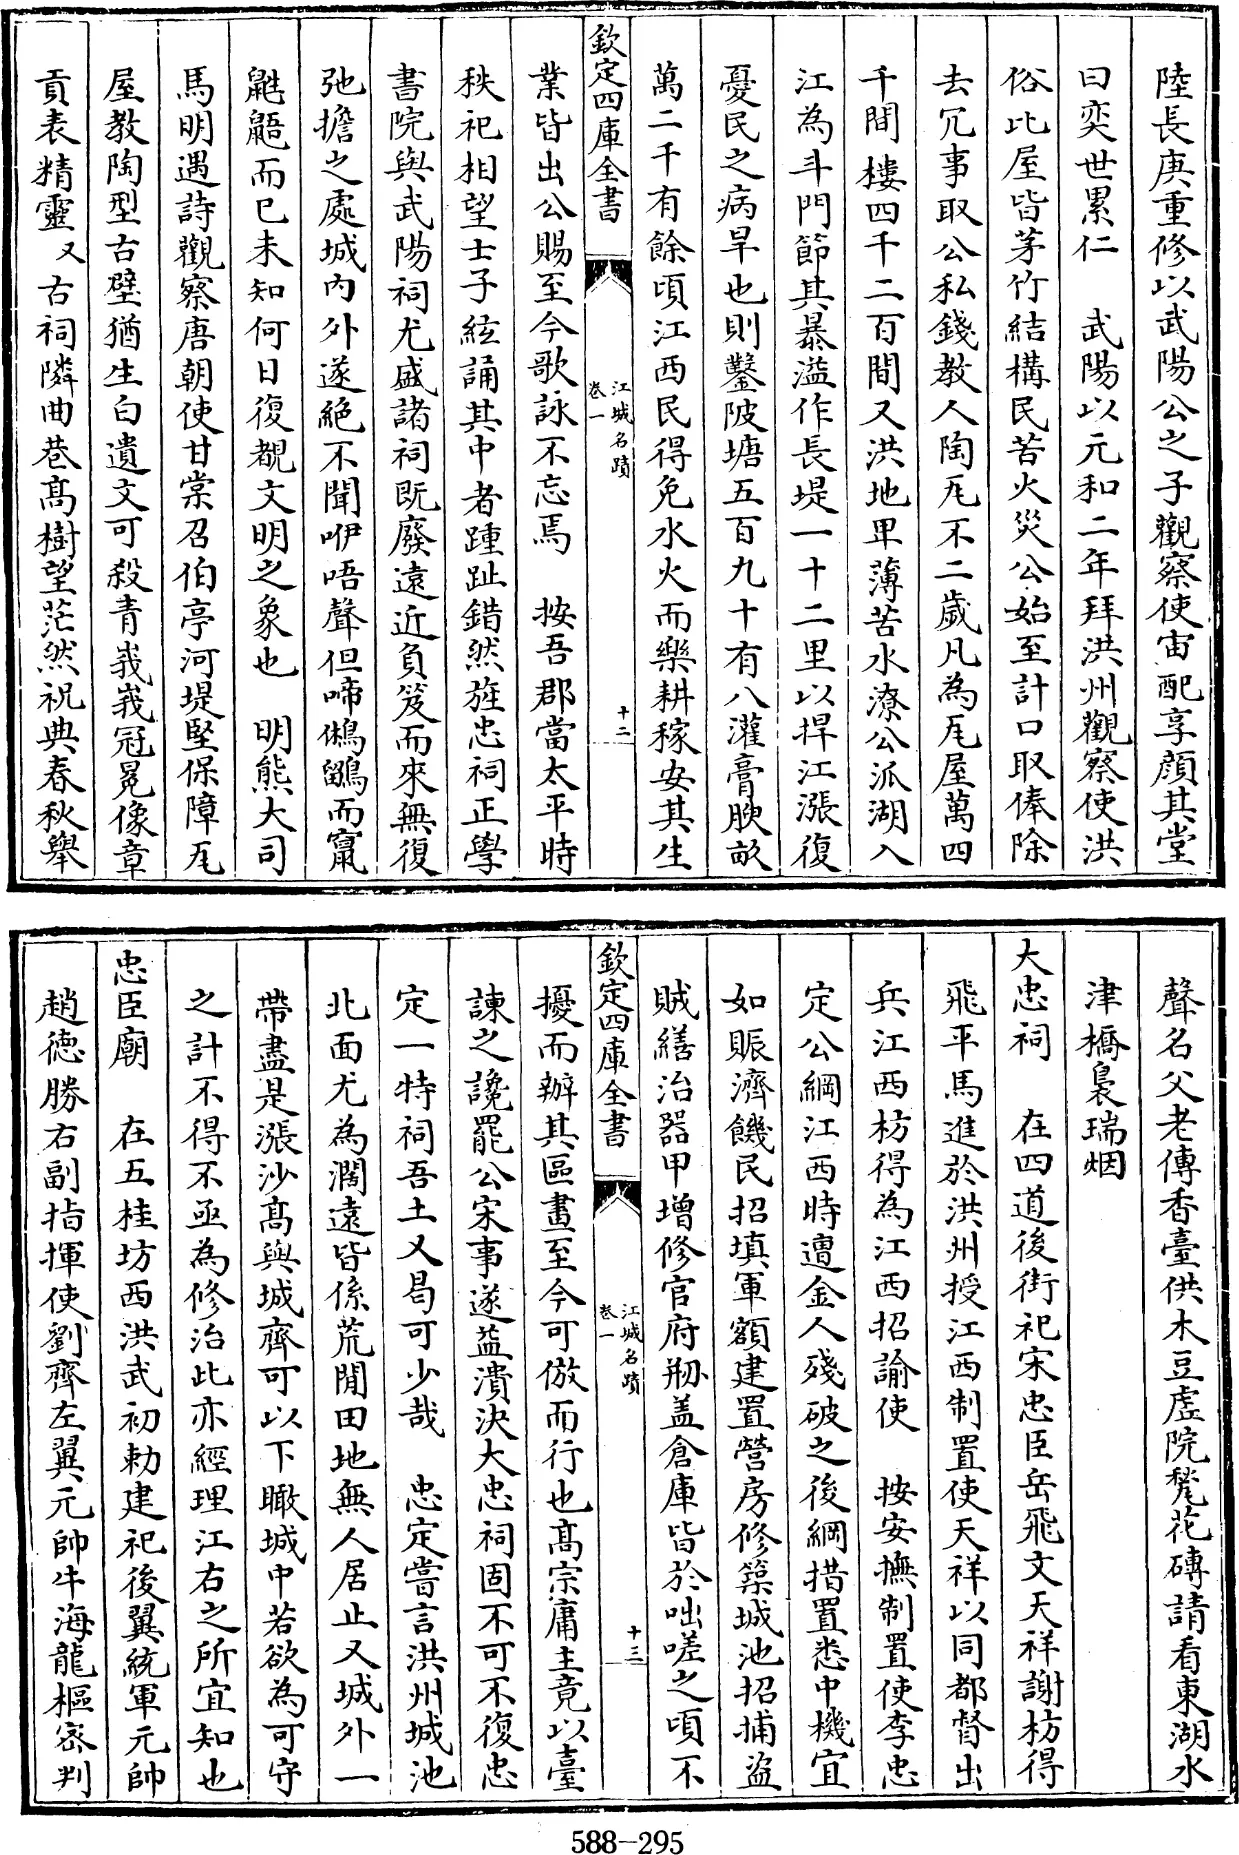 陸長庚重修以武陽公之子觀察使宙配享顔其堂
曰奕世累仁　武陽以元和二年拜洪州觀察使洪
俗比屋皆茅竹結構民苦火災公始至計口取俸除
去冗事取公私錢教人陶瓦不二歲凡為瓦屋萬四
千間樓四千二百間又洪地卑薄苦水潦公派湖入
江為斗門節其暴溢作長堤一十二里以捍江漲復
憂民之病旱也則鑿陂塘五百九十有八灌膏腴畝
萬二千有餘頃江西民得免水火而樂耕稼安其生
欽定四庫全書
江城名蹟
卷一
十二
業皆出公賜至今歌詠不忘焉　按吾郡當太平時
秩祀相望士子絃誦其中者踵趾錯然旌忠祠正學
書院與武陽祠尤盛諸祠既廢遠近負笈而來無復
弛擔之處城內外遂絶不聞咿唔聲但啼鵂鶹而竄
鼪鼯而已未知何日復覩文明之象也　明熊大司
馬明遇詩觀察唐朝使甘棠召伯亭河堤堅保障瓦
屋教陶型古壁猶生白遺文可殺青峩峩冠冕像章
貢表精靈又古祠隣曲巷髙樹望茫然祝典春秋舉
聲名父老傳香臺供木豆虛院甃花磚請看東湖水
津橋裊瑞烟
大忠祠　在四道後街祀宋忠臣岳飛文天祥謝枋得
飛平馬進於洪州授江西制置使天祥以同都督出
兵江西枋得為江西招諭使　按安撫制置使李忠
定公綱江西時遭金人殘破之後綱措置悉中機宜
如賑濟饑民招填軍額建置營房修築城池招捕盜
賊繕治器甲增修官府剏盖倉庫皆於咄嗟之頃不
欽定四庫全書
江城名蹟
卷一
十三
擾而辦其區畫至今可倣而行也髙宗庸主竟以臺
諫之讒罷公宋事遂益潰決大忠祠固不可不復忠
定一特祠吾土又曷可少哉　忠定嘗言洪州城池
北面尤為濶遠皆係荒閒田地無人居止又城外一
帶盡是漲沙髙與城齊可以下瞰城中若欲為可守
之計不得不亟為修治此亦經理江右之所宜知也
忠臣廟　在五桂坊西洪武初勅建祀後翼統軍元帥
趙徳勝右副指揮使劉齊左翼元帥牛海龍樞密判
588-295